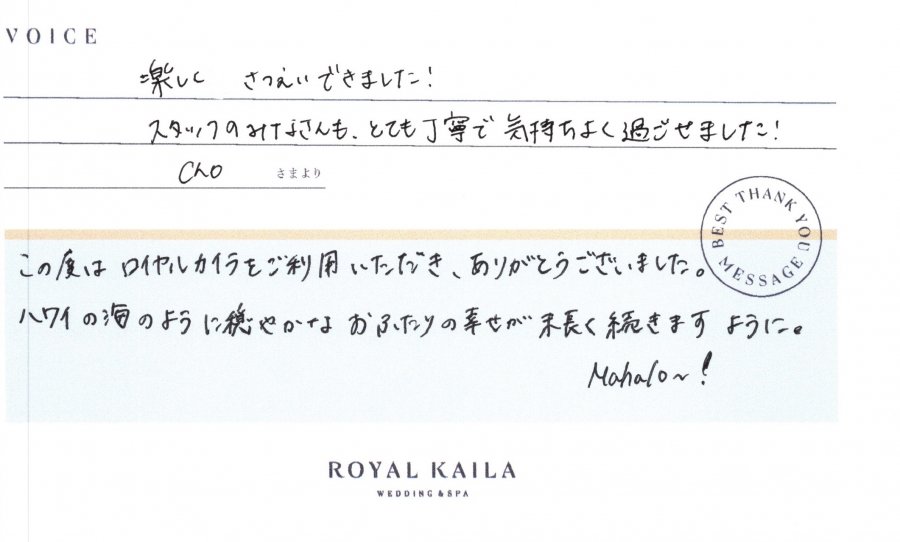 VOICE
楽しく さつえいできました!
スタッフのみなさんも、とても丁寧で気持ちよく過ごせました!
Cho さまより
BEST THANK YOU MESSAGE
この度はロイヤルカイラをご利用いただき、ありがとうございました。
ハワイの海のように穏やかなおふたりの幸せが末長く続きますように。
Mahalo~!
ROYAL KAILA
WEDDING & SPA